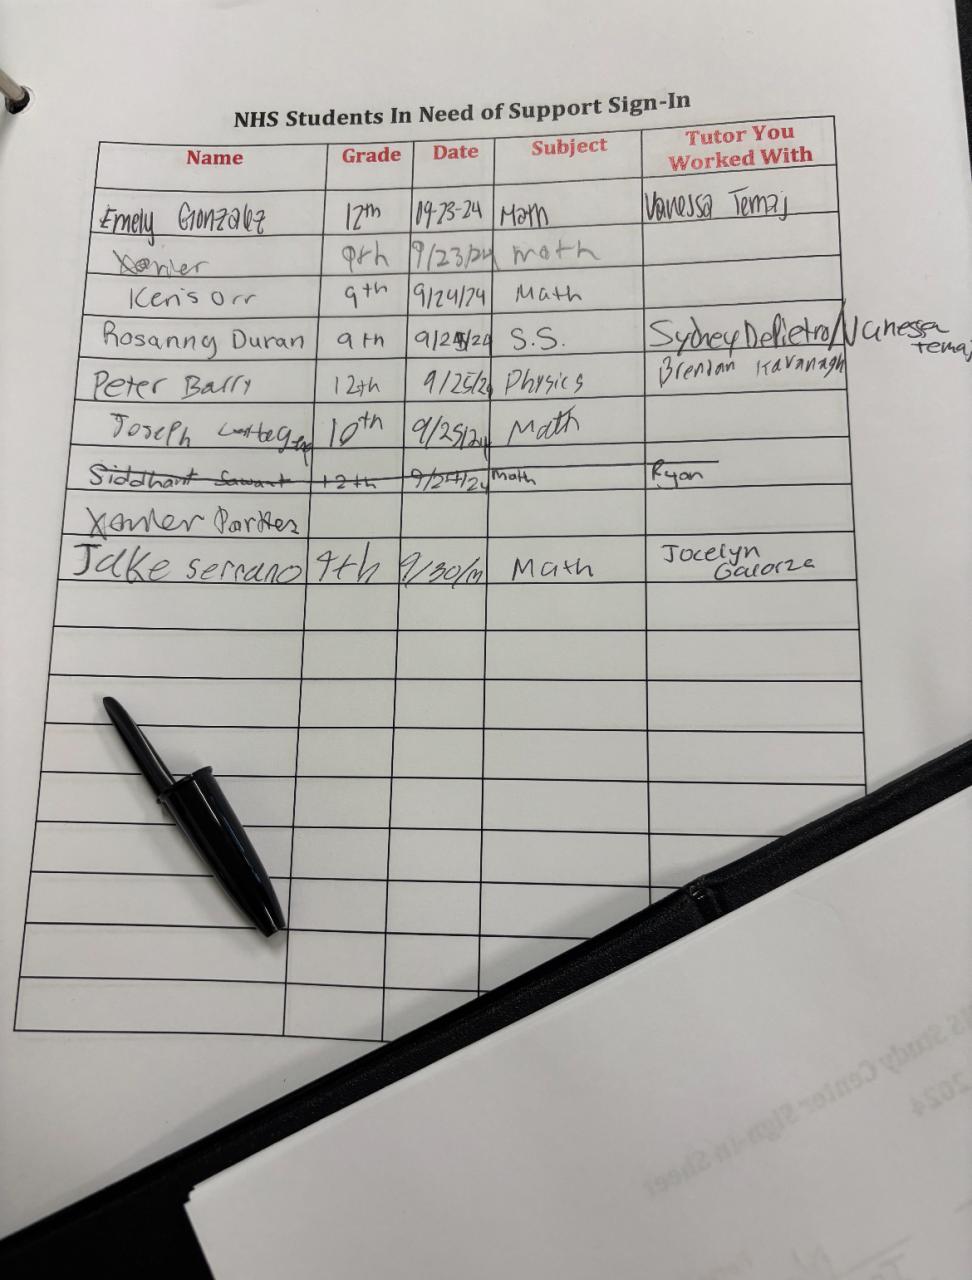 NHS Students In Need of Support Sign-In
Name Grade Date Subject Tutor You Worked With
Emely Gonzalez 12th 09-23-24 Math Vanessa Temaj
Xavier 9th 9/23/24 math
Kenis Orr 9th 9/24/24 Math
Rosanny Duran 9th 9/25/24 S.S. Sydney DePietro/Vanessa temaj
Peter Barry 12th 9/25/2 Physics Brendan Kavanagh
Joseph 10th 9/25/24 Math
Siddhant Sawant 12th 9/24/24 Math Ryan
Xavier Partes
Jake serrano 9th 9/30/ Math Jocelyn
S Study Center Sign-In Sheet
2024